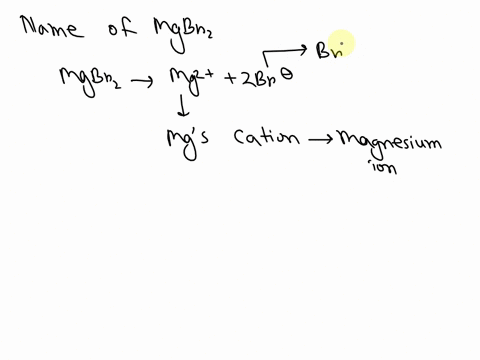 Name of MgBr₂
Br
MgBr₂ → Mg²⁺ + 2Br⊖
Mg's Cation → Magnesium
ion